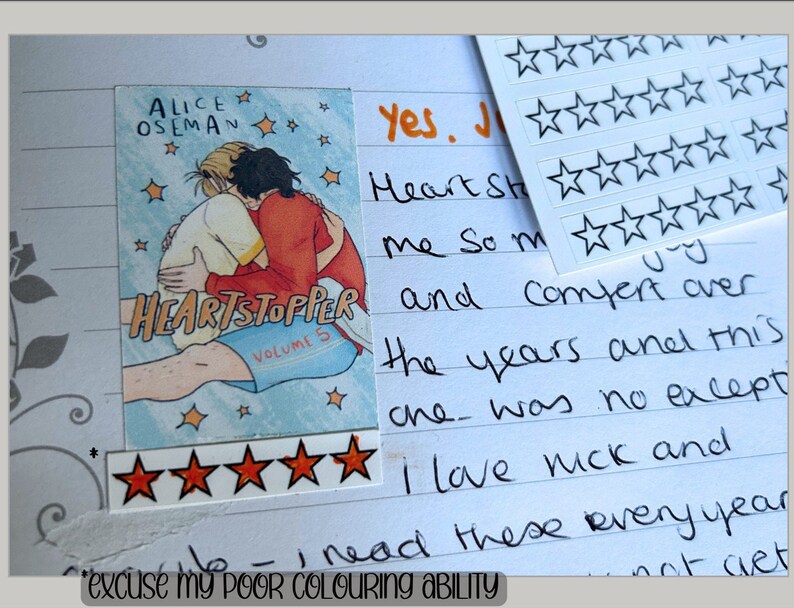 ALICE
OSEMAN
HEARTSTOPPER
VOLUME 5
Yes.
Heart
me so
and comfort over
the years and this
one was no except
i love nick and
- i read these every year
not get
*
*EXCUSE MY POOR COLOURING ABILITY